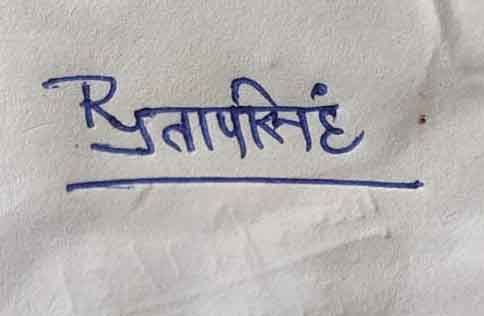 प्रतापसिंह